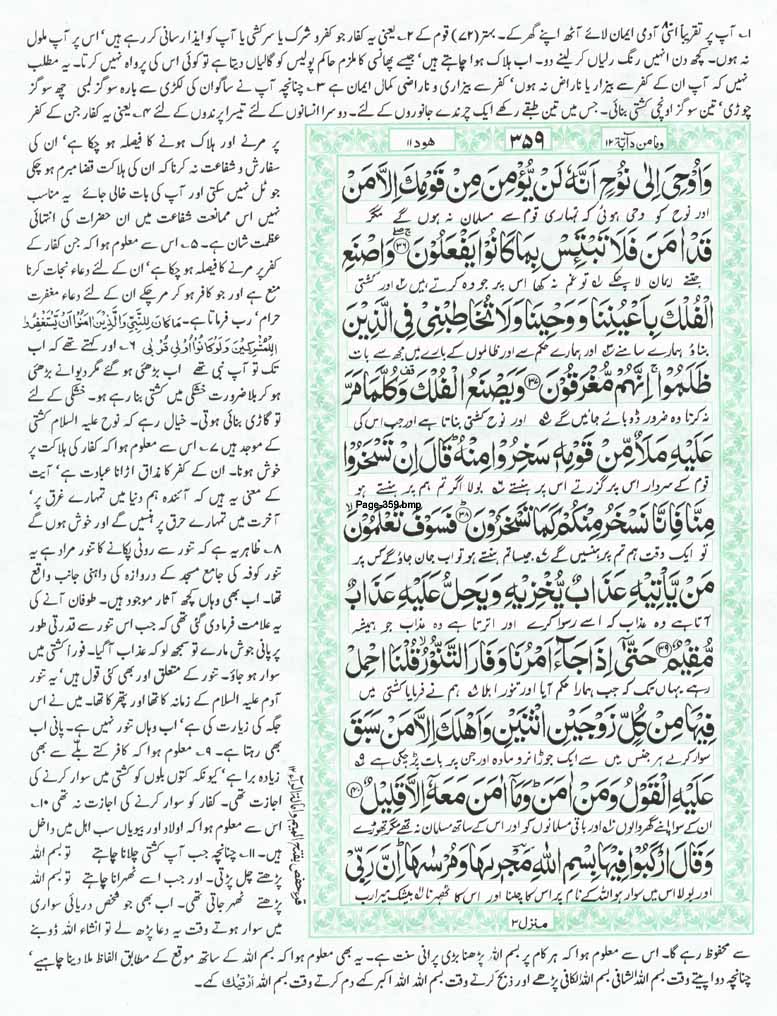 ۱؎ آپ پر تقریباً اسّی۸۰ آدمی ایمان لائے آٹھ اپنے گھر کے۔ بہتر (۷۲) قوم کے ۲؎ یعنی یہ کفار جو کفر و شرک یا سرکشی یا آپ کو ایذا رسانی کر رہے ہیں' اس پر آپ ملول
نہ ہوں۔ کچھ دن انہیں رنگ رلیاں کر لینے دو۔ اب ہلاک ہوا چاہتے ہیں' جیسے پھانسی کا ملزم حاکم پولیس کو گالیاں دیتا ہے تو کوئی اس کی پرواہ نہیں کرتا۔ یہ مطلب
نہیں کہ آپ ان کے کفر سے بیزار یا ناراض نہ ہوں' کفر سے بیزاری و ناراضی کمال ایمان ہے ۳؎ چنانچہ آپ نے ساگوان کی لکڑی سے بارہ سو گز لمبی چھ سو گز
چوڑی' تین سو گز اونچی کشتی بنائی۔ جس میں تین طبقے رکھے ایک چرندے جانوروں کے لئے۔ دوسرا انسانوں کے لئے تیسرا پرندوں کے لئے ۴؎ یعنی یہ کفار جن کے کفر
پر مرنے اور ہلاک ہونے کا فیصلہ ہو چکا ہے' ان کی
سفارش و شفاعت نہ کرنا کہ ان کی ہلاکت قضا مبرم ہو چکی
جو ٹل نہیں سکتی اور آپ کی بات خالی جائے یہ مناسب
نہیں اس ممانعت شفاعت میں ان حضرات کی انتہائی
عظمت شان ہے۔ ۵؎ اس سے معلوم ہوا کہ جن کفار کے
کفر پر مرنے کا فیصلہ ہو چکا ہے' ان کے لئے دعاء نجات کرنا
منع ہے اور جو کافر ہو کر مر چکے ان کے لئے دعاء مغفرت
حرام' رب فرماتا ہے۔ مَا كَانَ لِلنَّبِيِّ وَالَّذِيْنَ اٰمَنُوْا اَنْ يَّسْتَغْفِرُوْا
لِلْمُشْرِكِيْنَ وَلَوْ كَانُوْا اُولِيْ قُرْبٰى ۶؎ اور کہتے تھے کہ اب
تک تو آپ نبی تھے اب بڑھئی ہو گئے مگر دیوانے بڑھئی
ہو کر بلا ضرورت خشکی میں کشتی بنا رہے ہو۔ خشکی کے لئے
تو گاڑی بنائی ہوتی۔ خیال رہے کہ نوح علیہ السلام کشتی
کے موجد ہیں ۷؎ اس سے معلوم ہوا کہ کفار کی ہلاکت پر
خوش ہونا۔ ان کے کفر کا مذاق اڑانا عبادت ہے' آیت
کے معنی یہ ہیں کہ آئندہ ہم دنیا میں تمہارے غرق پر'
آخرت میں تمہارے حرق پر ہنسیں گے اور خوش ہوں گے
۸؎ ظاہر یہ ہے کہ تنور سے روٹی پکانے کا تنور مراد ہے یہ
تنور کوفہ کی جامع مسجد کے دروازہ کی داہنی جانب واقع
تھا۔ اب بھی وہاں کچھ آثار موجود ہیں۔ طوفان آنے کی
یہ علامت فرما دی گئی تھی کہ جب اس تنور سے قدرتی طور
پر پانی جوش مارے تو سمجھ لو کہ عذاب آ گیا۔ فوراً کشتی میں
سوار ہو جاؤ۔ تنور کے متعلق اور بھی کئی قول ہیں' یہ تنور
آدم علیہ السلام کے زمانہ کا تھا اور پتھر کا تھا۔ میں نے اس
جگہ کی زیارت کی ہے' اب وہاں تنور نہیں ہے۔ پانی اب
بھی رہتا ہے۔ ۹؎ معلوم ہوا کہ کافر کتے بلے سے بھی
زیادہ برا ہے' کیونکہ کتوں بلوں کو کشتی میں سوار کرنے کی
اجازت تھی۔ کفار کو سوار کرنے کی اجازت نہ تھی ۱۰؎
اس سے معلوم ہوا کہ اولاد اور بیویاں سب اہل میں داخل
ہیں۔ ۱۱؎ چنانچہ جب آپ کشتی چلانا چاہتے تو بسم اللہ
پڑھتے چل پڑتی۔ اور جب اسے ٹھہرانا چاہتے تو بسم اللہ
پڑھتے ٹھہر جاتی تھی۔ اب بھی جو شخص دریائی سواری
میں سوار ہوتے وقت یہ دعا پڑھ لے تو انشاء اللہ ڈوبنے
سے محفوظ رہے گا۔ اس سے معلوم ہوا کہ ہر کام پر بسم اللہ پڑھنا بڑی پرانی سنت ہے۔ یہ بھی معلوم ہوا کہ بسم اللہ کے ساتھ موقع کے مطابق الفاظ ملا دینا چاہیے'
چنانچہ دوا پیتے وقت بسم اللہ الشافی بسم اللہ الکافی پڑھے اور ذبح کرتے وقت بسم اللہ اللہ اکبر کہے دم کرتے وقت بسم اللہ اَرْقِیْکَ کہے۔
ومامن دآبۃ ۱۲
۳۵۹
ھود ۱۱
وَاُوْحِيَ اِلٰى نُوْحٍ اَنَّهٗ لَنْ يُّؤْمِنَ مِنْ قَوْمِكَ اِلَّا مَنْ
اور نوح کو وحی ہوئی کہ تمہاری قوم سے مسلمان نہ ہوں گے مگر
قَدْ اٰمَنَ فَلَا تَبْتَىِٕسْ بِمَا كَانُوْا يَفْعَلُوْنَ ۳۶ وَاصْنَعِ
جتنے ایمان لا چکے تو غم نہ کھا اس پر جو وہ کرتے ہیں اور کشتی
الْفُلْكَ بِاَعْيُنِنَا وَوَحْيِنَا وَلَا تُخَاطِبْنِيْ فِي الَّذِيْنَ
بناؤ ہمارے سامنے اور ہمارے حکم سے اور ظالموں کے بارے میں مجھ سے بات
ظَلَمُوْا اِنَّهُمْ مُّغْرَقُوْنَ ۳۷ وَيَصْنَعُ الْفُلْكَ وَكُلَّمَا مَرَّ
نہ کرنا وہ ضرور ڈوبائے جائیں گے اور نوح کشتی بناتا ہے اور جب اس کی
عَلَيْهِ مَلَاٌ مِّنْ قَوْمِهٖ سَخِرُوْا مِنْهُ قَالَ اِنْ تَسْخَرُوْا
قوم کے سردار اس پر گزرتے اس پر ہنستے بولا اگر تم ہم پر ہنستے ہو
Page-359.bmp
مِنَّا فَاِنَّا نَسْخَرُ مِنْكُمْ كَمَا تَسْخَرُوْنَ ۳۸ فَسَوْفَ تَعْلَمُوْنَ
تو ایک وقت ہم تم پر ہنسیں گے جیسا تم ہنستے ہو تو اب جان جاؤ گے کس پر
مَنْ يَّاْتِيْهِ عَذَابٌ يُّخْزِيْهِ وَيَحِلُّ عَلَيْهِ عَذَابٌ
آتا ہے وہ عذاب کہ اسے رسوا کرے اور اترتا ہے وہ عذاب جو ہمیشہ
مُّقِيْمٌ ۳۹ حَتّٰى اِذَا جَآءَ اَمْرُنَا وَفَارَ التَّنُّوْرُ قُلْنَا احْمِلْ
رہے یہاں تک کہ جب ہمارا حکم آیا اور تنور ابلا ہم نے فرمایا کشتی میں
فِيْهَا مِنْ كُلٍّ زَوْجَيْنِ اثْنَيْنِ وَاَهْلَكَ اِلَّا مَنْ سَبَقَ
سوار کر لے ہر جنس میں سے ایک جوڑا نر و مادہ اور جن پر بات پڑ چکی ہے
عَلَيْهِ الْقَوْلُ وَمَنْ اٰمَنَ وَمَآ اٰمَنَ مَعَهٗٓ اِلَّا قَلِيْلٌ ۴۰
ان کے سوا اپنے گھر والوں اور باقی مسلمانوں کو اور اس کے ساتھ مسلمان نہ تھے مگر تھوڑے
وَقَالَ ارْكَبُوْا فِيْهَا بِسْمِ اللّٰهِ مَجْرٖىهَا وَمُرْسٰىهَا اِنَّ رَبِّيْ
اور بولا اس میں سوار ہو اللہ کے نام پر اس کا چلنا اور اس کا ٹھہرنا بیشک میرا رب
منزل ۳